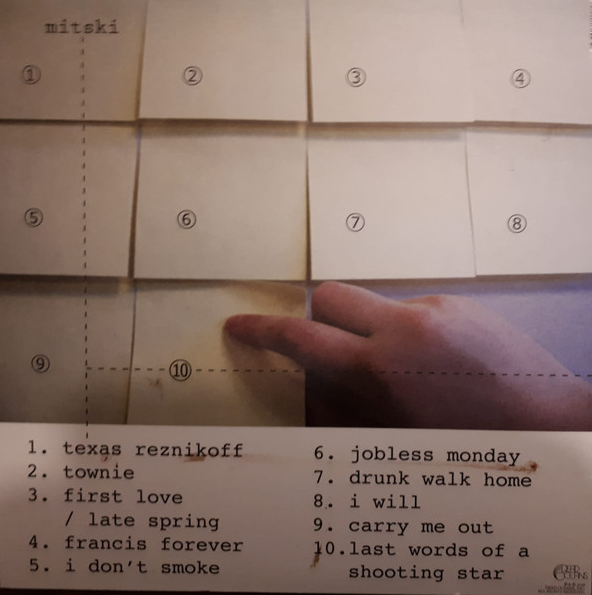 mitski
① ② ③ ④
⑤ ⑥ ⑦ ⑧
⑨ ⑩
1. texas reznikoff
2. townie
3. first love
/ late spring
4. francis forever
5. i don't smoke
6. jobless monday
7. drunk walk home
8. i will
9. carry me out
10.last words of a
shooting star
DEAD
OCEANS